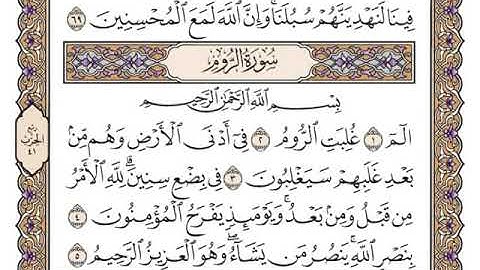 فِينَا لَنَهْدِيَنَّهُمْ سُبُلَنَا ۚ وَإِنَّ اللَّهَ لَمَعَ الْمُحْسِنِينَ ٦٩
سُورَةُ الرُّومِ
بِسْمِ اللَّهِ الرَّحْمَٰنِ الرَّحِيمِ
الٓمٓ ١ غُلِبَتِ الرُّومُ ٢ فِىٓ أَدْنَى الْأَرْضِ وَهُم مِّنۢ
بَعْدِ غَلَبِهِمْ سَيَغْلِبُونَ ٣ فِى بِضْعِ سِنِينَ ۗ لِلَّهِ الْأَمْرُ
مِن قَبْلُ وَمِنۢ بَعْدُ ۚ وَيَوْمَئِذٍ يَفْرَحُ الْمُؤْمِنُونَ ٤
بِنَصْرِ اللَّهِ ۚ يَنصُرُ مَن يَشَآءُ ۖ وَهُوَ الْعَزِيزُ الرَّحِيمُ ٥
ربع
الحزب
٤١